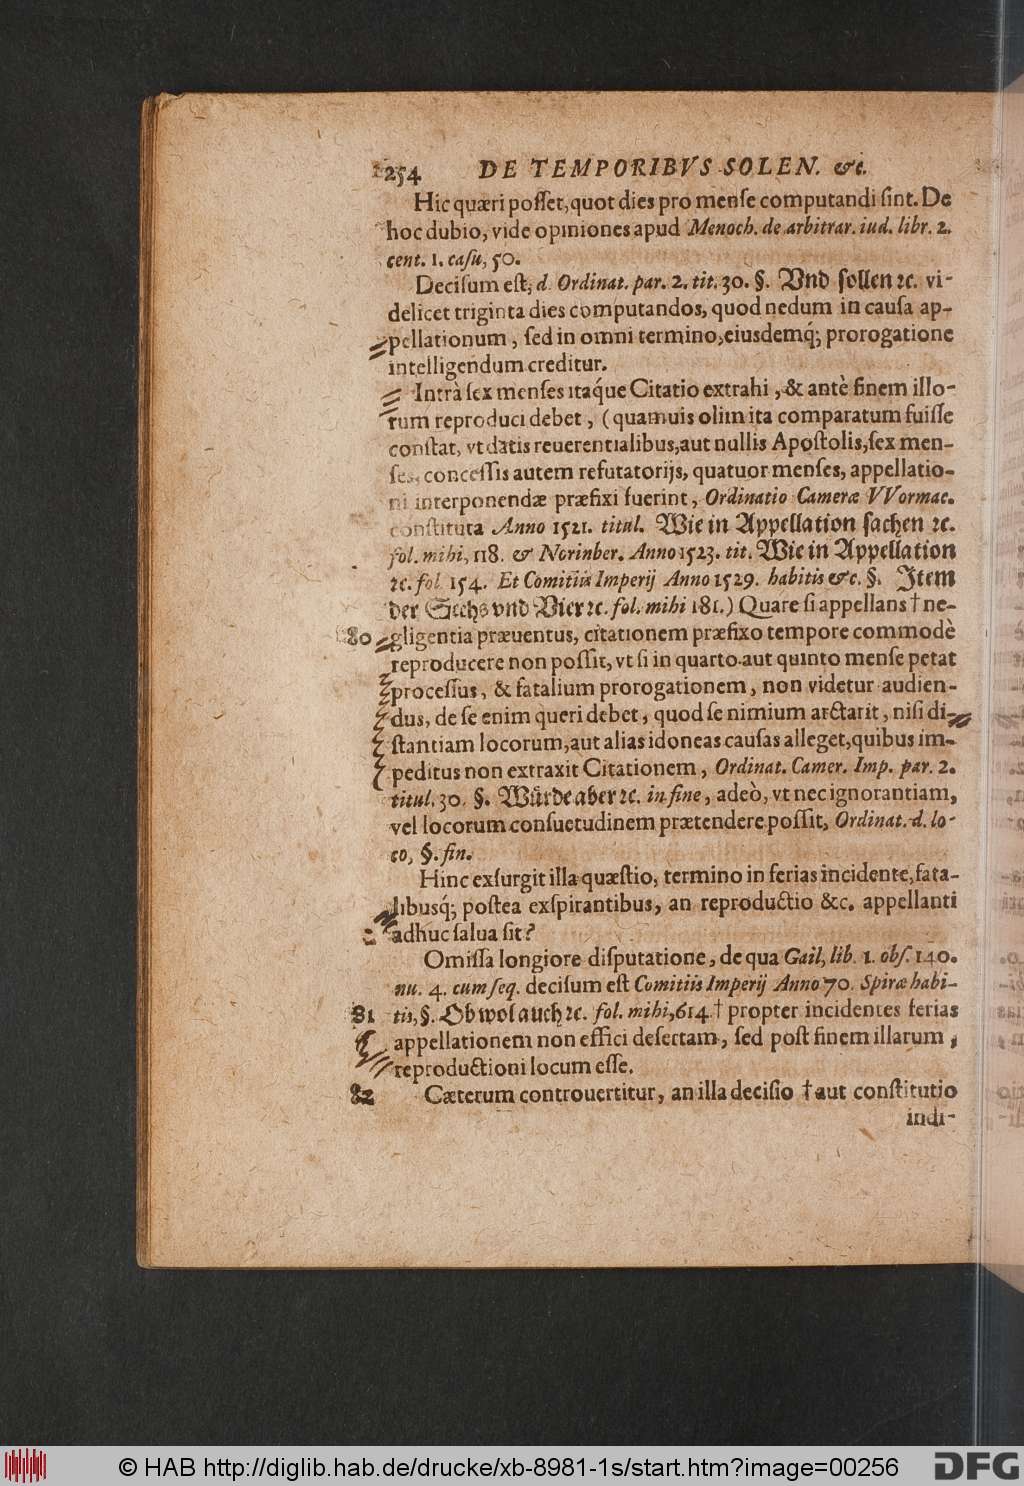 254 DE TEMPORIBVS SOLEN. &c.
Hic quæri posset, quot dies pro mense computandi sint. De
hoc dubio, vide opiniones apud Menoch. de arbitrar. iud. libr. 2.
cent. 1. casu, 50.
Decisum est, d. Ordinat. par. 2. tit. 30. §. Vnd sollen ꝛc. vi-
delicet triginta dies computandos, quod nedum in causa ap-
pellationum, sed in omni termino, eiusdemq́; prorogatione
intelligendum creditur.
Intrà sex menses itaq́ue Citatio extrahi, & antè finem illo-
rum reproduci debet, (quamuis olim ita comparatum fuisse
constat, vt datis reuerentialibus, aut nullis Apostolis, sex men-
ses, concessis autem refutatorijs, quatuor menses, appellatio-
ni interponendæ præfixi fuerint, Ordinatio Cameræ VVormac.
constituta Anno 1521. titul. Wie in Appellation sachen ꝛc.
fol. mihi, 118. & Norinber. Anno 1523. tit. Wie in Appellation
ꝛc. fol. 154. Et Comitiis Imperij Anno 1529. habitis &c. §. Item
der Sechs vnd Vier ꝛc. fol. mihi 181.) Quare si appellans † ne-
80 gligentia præuentus, citationem præfixo tempore commodè
reproducere non possit, vt si in quarto aut quinto mense petat
processus, & fatalium prorogationem, non videtur audien-
dus, de se enim queri debet, quod se nimium arctarit, nisi di-
stantiam locorum, aut alias idoneas causas alleget, quibus im-
peditus non extraxit Citationem, Ordinat. Camer. Imp. par. 2.
titul. 30. §. Würde aber ꝛc. in fine, adeò, vt nec ignorantiam,
vel locorum consuetudinem prætendere possit, Ordinat. d. lo-
co, §. fin.
Hinc exsurgit illa quæstio, termino in ferias incidente, fata-
libusq́; postea exspirantibus, an reproductio &c. appellanti
adhuc salua sit?
Omissa longiore disputatione, de qua Gail, lib. 1. obs. 140.
nu. 4. cum seq. decisum est Comitiis Imperij Anno 70. Spiræ habi-
81 tis, §. Ob wol auch ꝛc. fol. mihi, 614. † propter incidentes ferias
appellationem non effici desertam, sed post finem illarum,
reproductioni locum esse.
82 Cæterum controuertitur, an illa decisio † aut constitutio
indi-
© HAB http://diglib.hab.de/drucke/xb-8981-1s/start.htm?image=00256
DFG